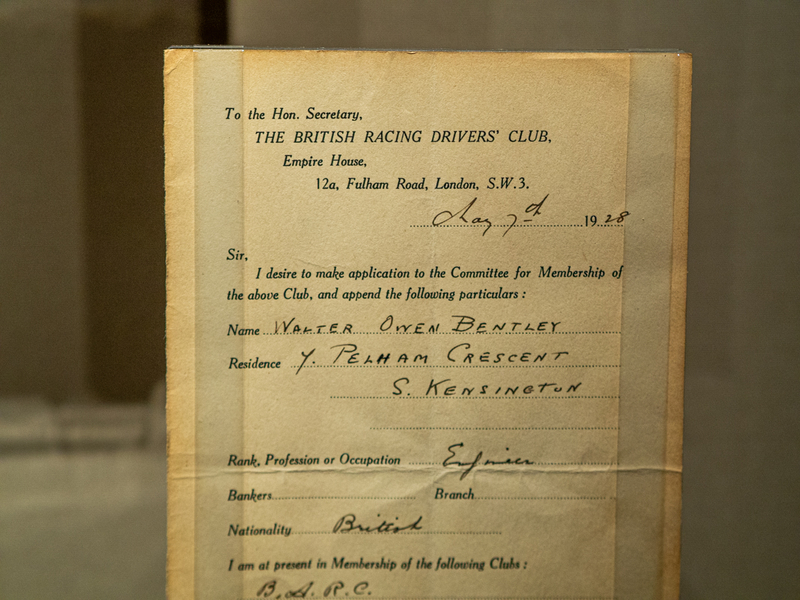 To the Hon. Secretary,
THE BRITISH RACING DRIVERS' CLUB,
Empire House,
12a, Fulham Road, London, S.W.3.
May 7th 1928
Sir,
I desire to make application to the Committee for Membership of
the above Club, and append the following particulars :
Name WALTER OWEN BENTLEY
Residence 7. PELHAM CRESCENT
S. KENSINGTON
Rank, Profession or Occupation Engineer
Bankers Branch
Nationality British
I am at present in Membership of the following Clubs :
B.A.R.C.